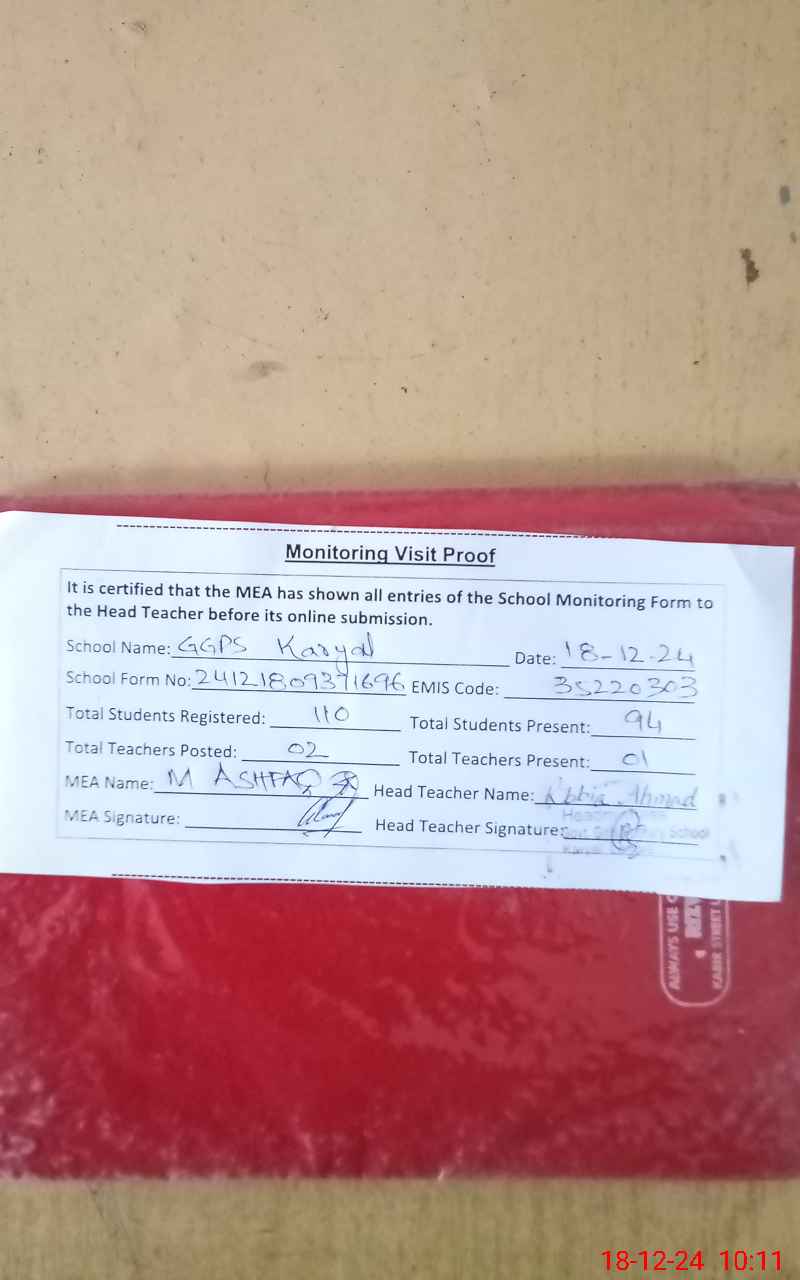 Monitoring Visit Proof
It is certified that the MEA has shown all entries of the School Monitoring Form to
the Head Teacher before its online submission.
School Name: GGPS Karyal Date: 18-12-24
School Form No: 24121809371696 EMIS Code: 35220303
Total Students Registered: 110 Total Students Present: 94
Total Teachers Posted: 02 Total Teachers Present: 01
MEA Name: M ASHFAQ Head Teacher Name: Ahmad
MEA Signature: Head Teacher Signature:
School
ALWAYS USE
KABIR STREET
18-12-24 10:11